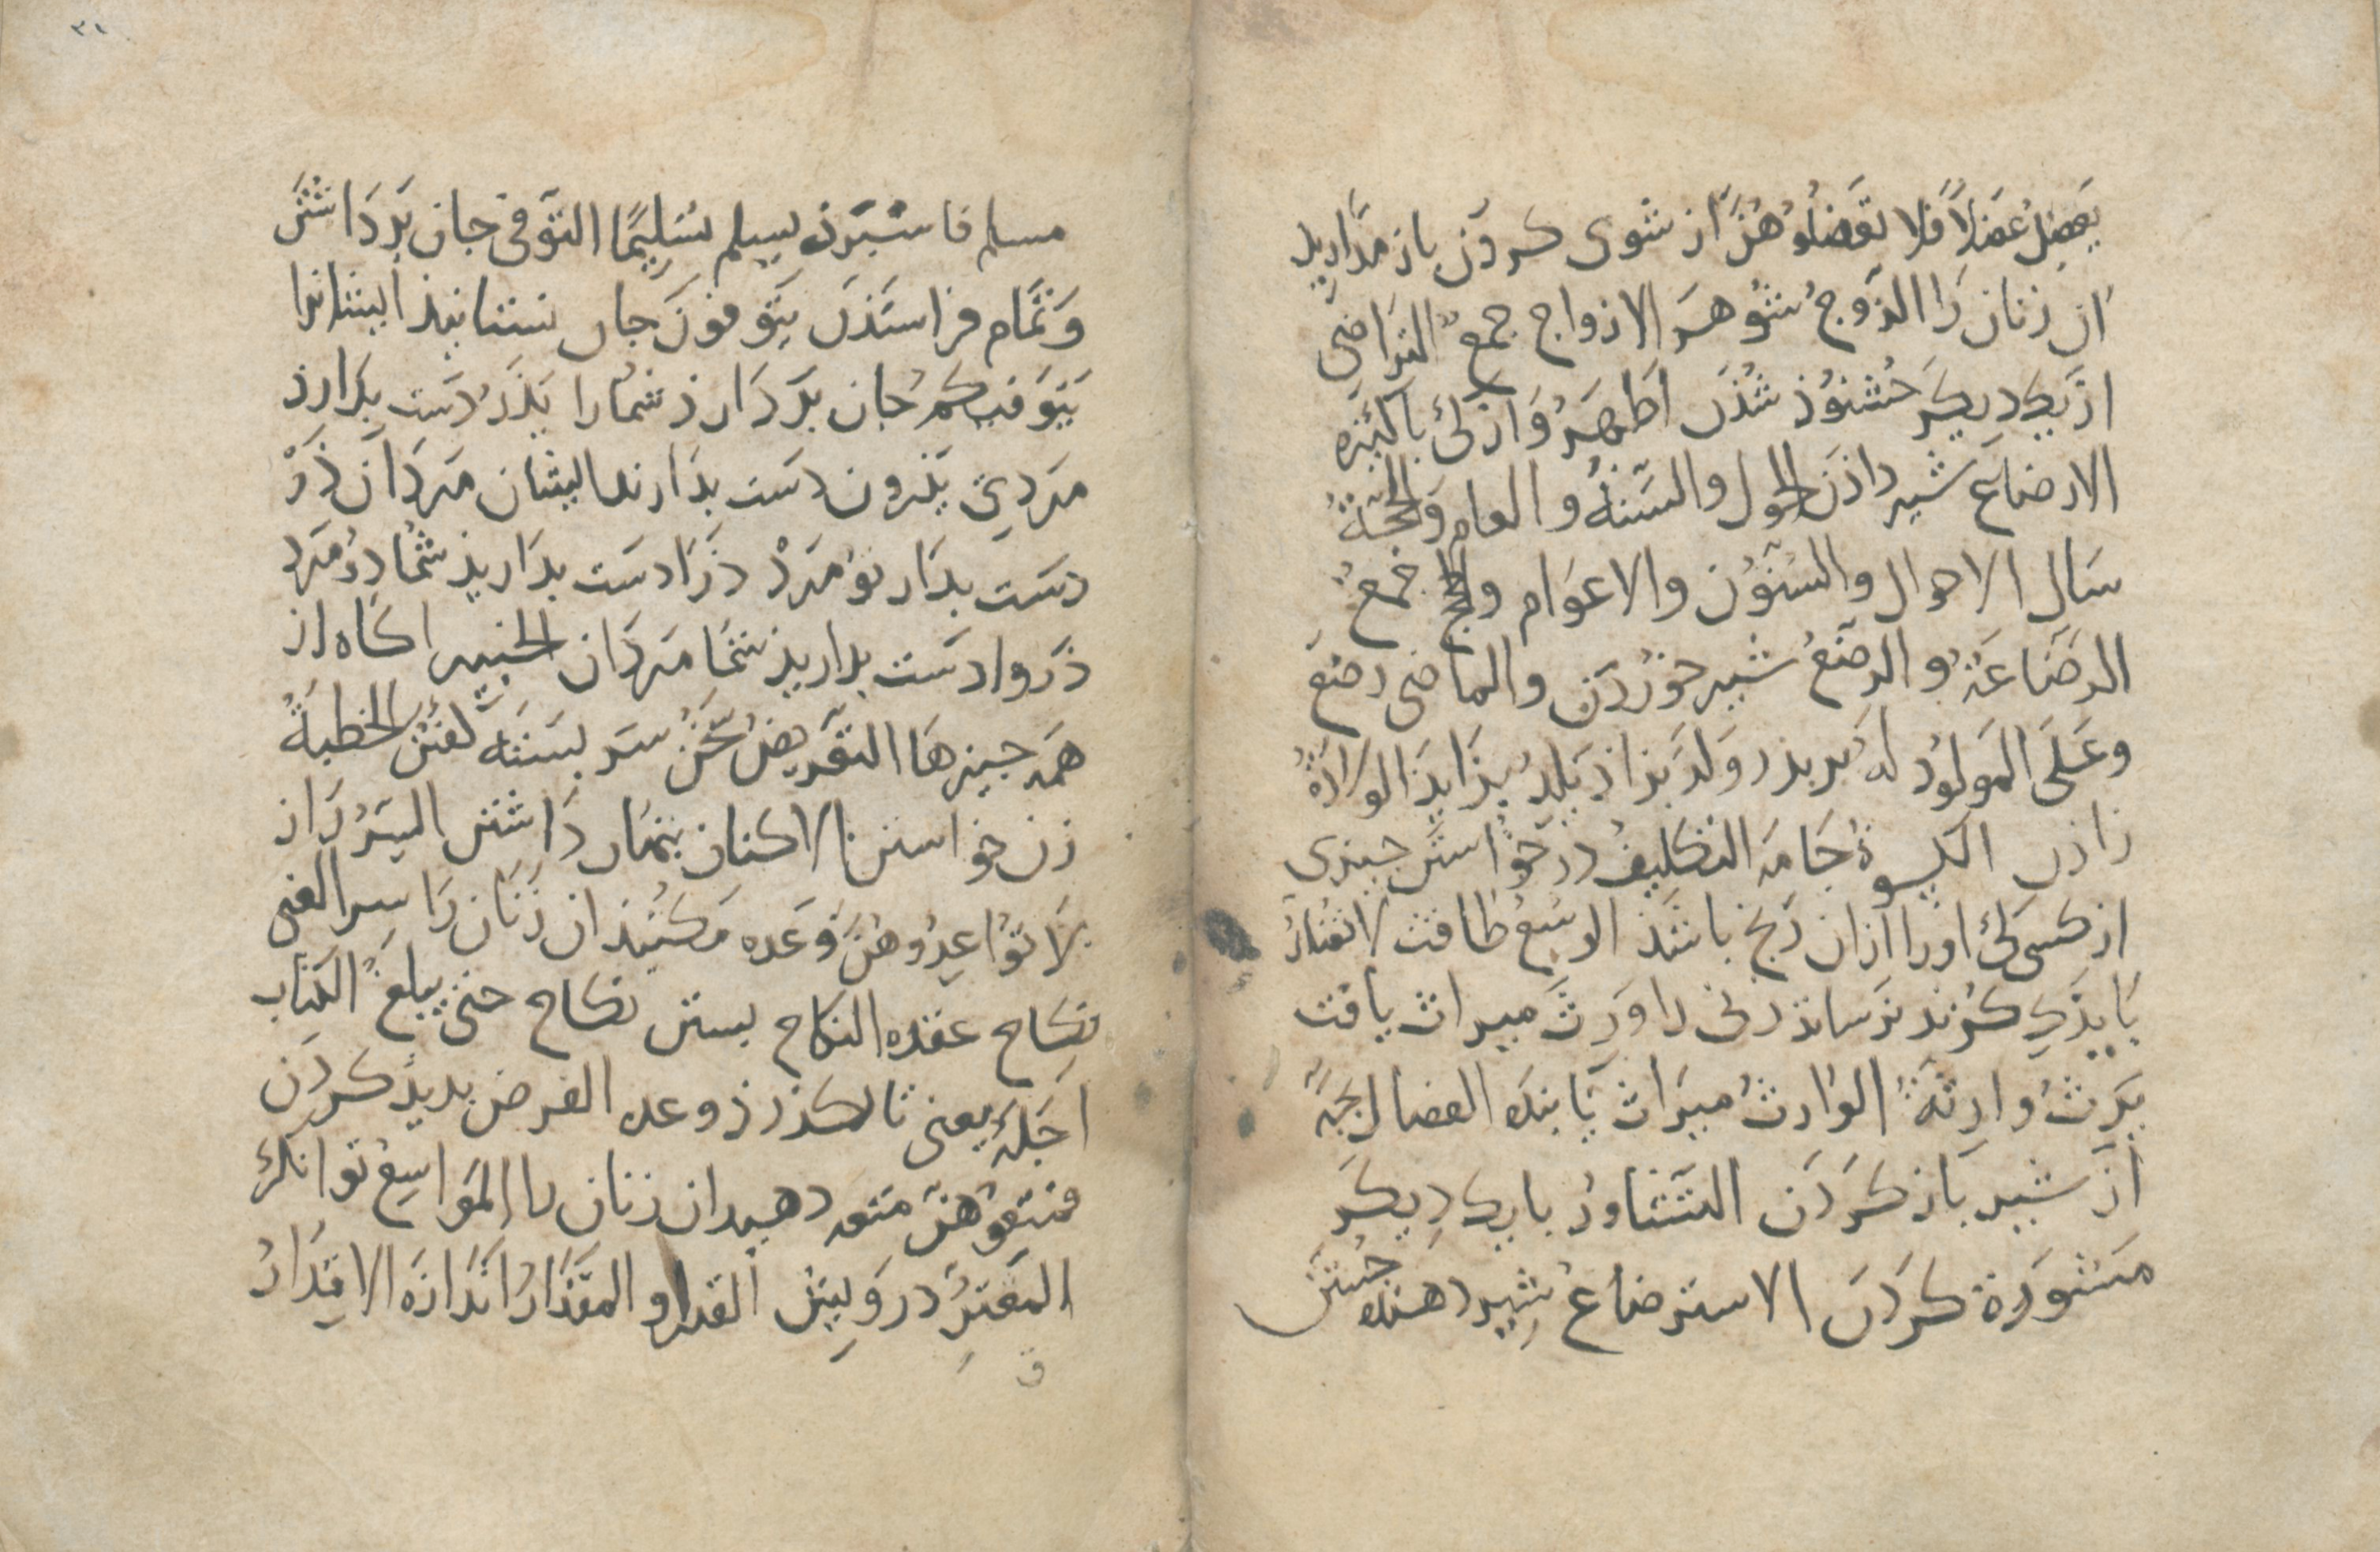 يَعضِلُ عَضلاً فلا تعضلُوهُنَّ از شوى كردن باز مداريد
آن زنان را الزَّوجُ شُوهَر الازواج جمعٌ التراضى
از يكديكر خُشنوُذ شُذن اَطهَرُ وَازكى باكيزه
الارضاع شير داذن الحول والسَّنةُ والعام وَالحجَّةُ
سَال الاحوال والسنوُن والاعوَام والحجج جمعٌ
الرضَاعَةُ والرضعُ شير خوُردَن والماضى رضعَ
وَعَلَى المَولوُد لهُ بر بذر وَلدَ بزاذ يَلِدُ بزايذ الولادَةُ
زاذن الكِسوةُ جَامَه التكليفُ در خوُاستن جيزى
از كسى كى اورا ازان رنج باشَذ الوسْعُ طاقت لا تُضَارَّ
بَايذكى كزند نرسانذ زنى را وَرِثَ ميراث يافت
يَرِثُ وارِثةُ الوَارثُ ميرَاث يَابنده الفصال بجه
از شير بَاز كَردَن التشَاورُ با يكدِيكَر
مَشوَرة كردَن الاسترضاعُ شِير دهنده جُستن
مسلم فا سبردن يسلم تسلِيمًا التوَفى جان بَردَاشتن
وَتمَام فراستَذن يَتوَفونَ جان بستانيذ ايشانرا
يَتوَفيكم جان بَردَارذ شمارا يَذَرُ دَست بِدارذ
مَردِى يَذرون دَست بدَارند ايشان مَردَان ذَرْ
دسَت بدَار توُ مَردْ ذَرَا دسَت بدَاريذ شمُا دوُ مَرد
ذَروا دسَت بداريذ شمَا مَردَان الخبير اكَاه از
همه جيزها التعريضُ سُخَن سَر بَستَه كفتن الخطبةُ
زن خواستن الاكنان بنهان دَاشتن السِّرُّ رَاز
لا توُاعِدُوهُنَّ وَعده مَكنيذ ان زَنَان رَا سِرا الغنى
نِكاح عقده النكاح بستن نكاح حتى يبلغَ الكتاب
اَجَلَهُ يعنى تا بكذرذ وعده الفرض بديذ كردَن
فمتعوُهُنَّ متعه دهيد ان زنان را الموَاسِعُ توانكر
المقتِرُ دروِيش القدر و المقدَارُ اَندَازه الاقتِدَارُ